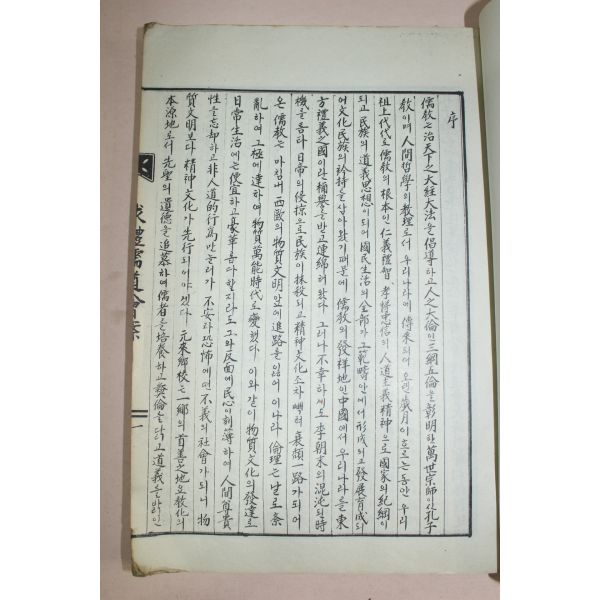 序
儒敎는 治天下之大經大法을 倡導하고 人之大倫인 三綱五倫을 彰明한 萬世宗師이신 孔子
敎이며 人間哲學의 敎理로서 우리나라에 傳來되여 오랜 歲月이 흐르는 동안 우리
祖上代代로 儒敎의 根本인 仁義禮智 孝悌忠信의 人道主義精神으로 國家의 紀綱이
되고 民族의 道義思想이 되여 國民生活의 全部가 그 範疇안에서 形成되고 發展育成되
어 文化民族의 矜持를 삼아 왔기 때문에 儒敎의 發祥地인 中國에서 우리나라를 東
方禮義之國이란 稱譽를 받고 連綿해 왔다 그러나 不幸하게도 李朝末의 混沌된 時
機를 틈타 日帝의 侵掠으로 民族이 抹殺되고 精神文化조차 빼껴 衰頹一路가 되어
온 儒敎는 마침내 西歐의 物質文明 앞에 進路를 잃어 이나라 倫理는 날로 紊
亂하여 그 極에 達하여 物質萬能時代로 變했다 이와 같이 物質文化의 發達로
日常生活에는 便宜하고 豪華롭다 할지라도 그와 反面에 民心이 刻薄하여 人間尊貴
性을 忘却하고 非人道的 行爲만 늘러가 不安과 恐怖에 떤 不義의 社會가 되니 物
質文明보다 精神文化가 先行되어야 겠다 元來 鄕校는 一鄕의 首善之地요 敎化의
本源地로서 先聖의 遺德을 追慕하여 儒者를 培養하고 彛倫을 닦고 道義를 밝힌
禮儒道會
一